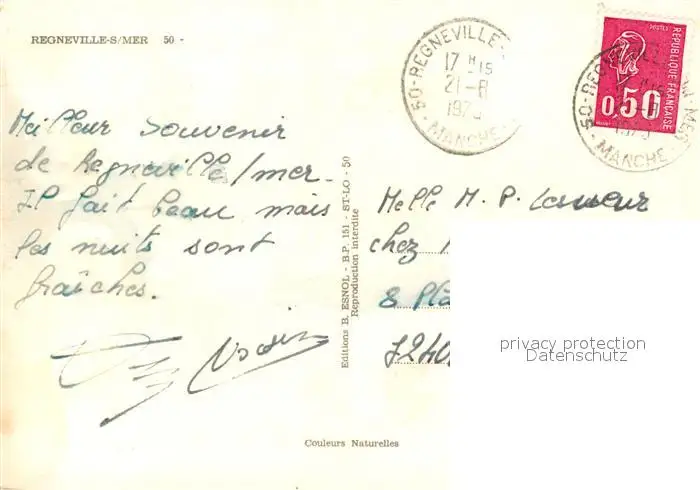 REGNEVILLE-S/MER 50 -
Meilleur Souvenir
de Regneville/mer.
Il fait beau mais
les nuits sont
fraîches.
Editions B. ESNOL - B.P. 151 - ST-LO - 50
Reproduction interdite
50-REGNEVILLE-S
17 H 15
21-8
197
MANCHE
POSTES
RÉPUBLIQUE FRANÇAISE
0,50
50-REG
MANCHE
Melle M. P. Lesueur
chez
8 Pla
7240
privacy protection
Datenschutz
Couleurs Naturelles